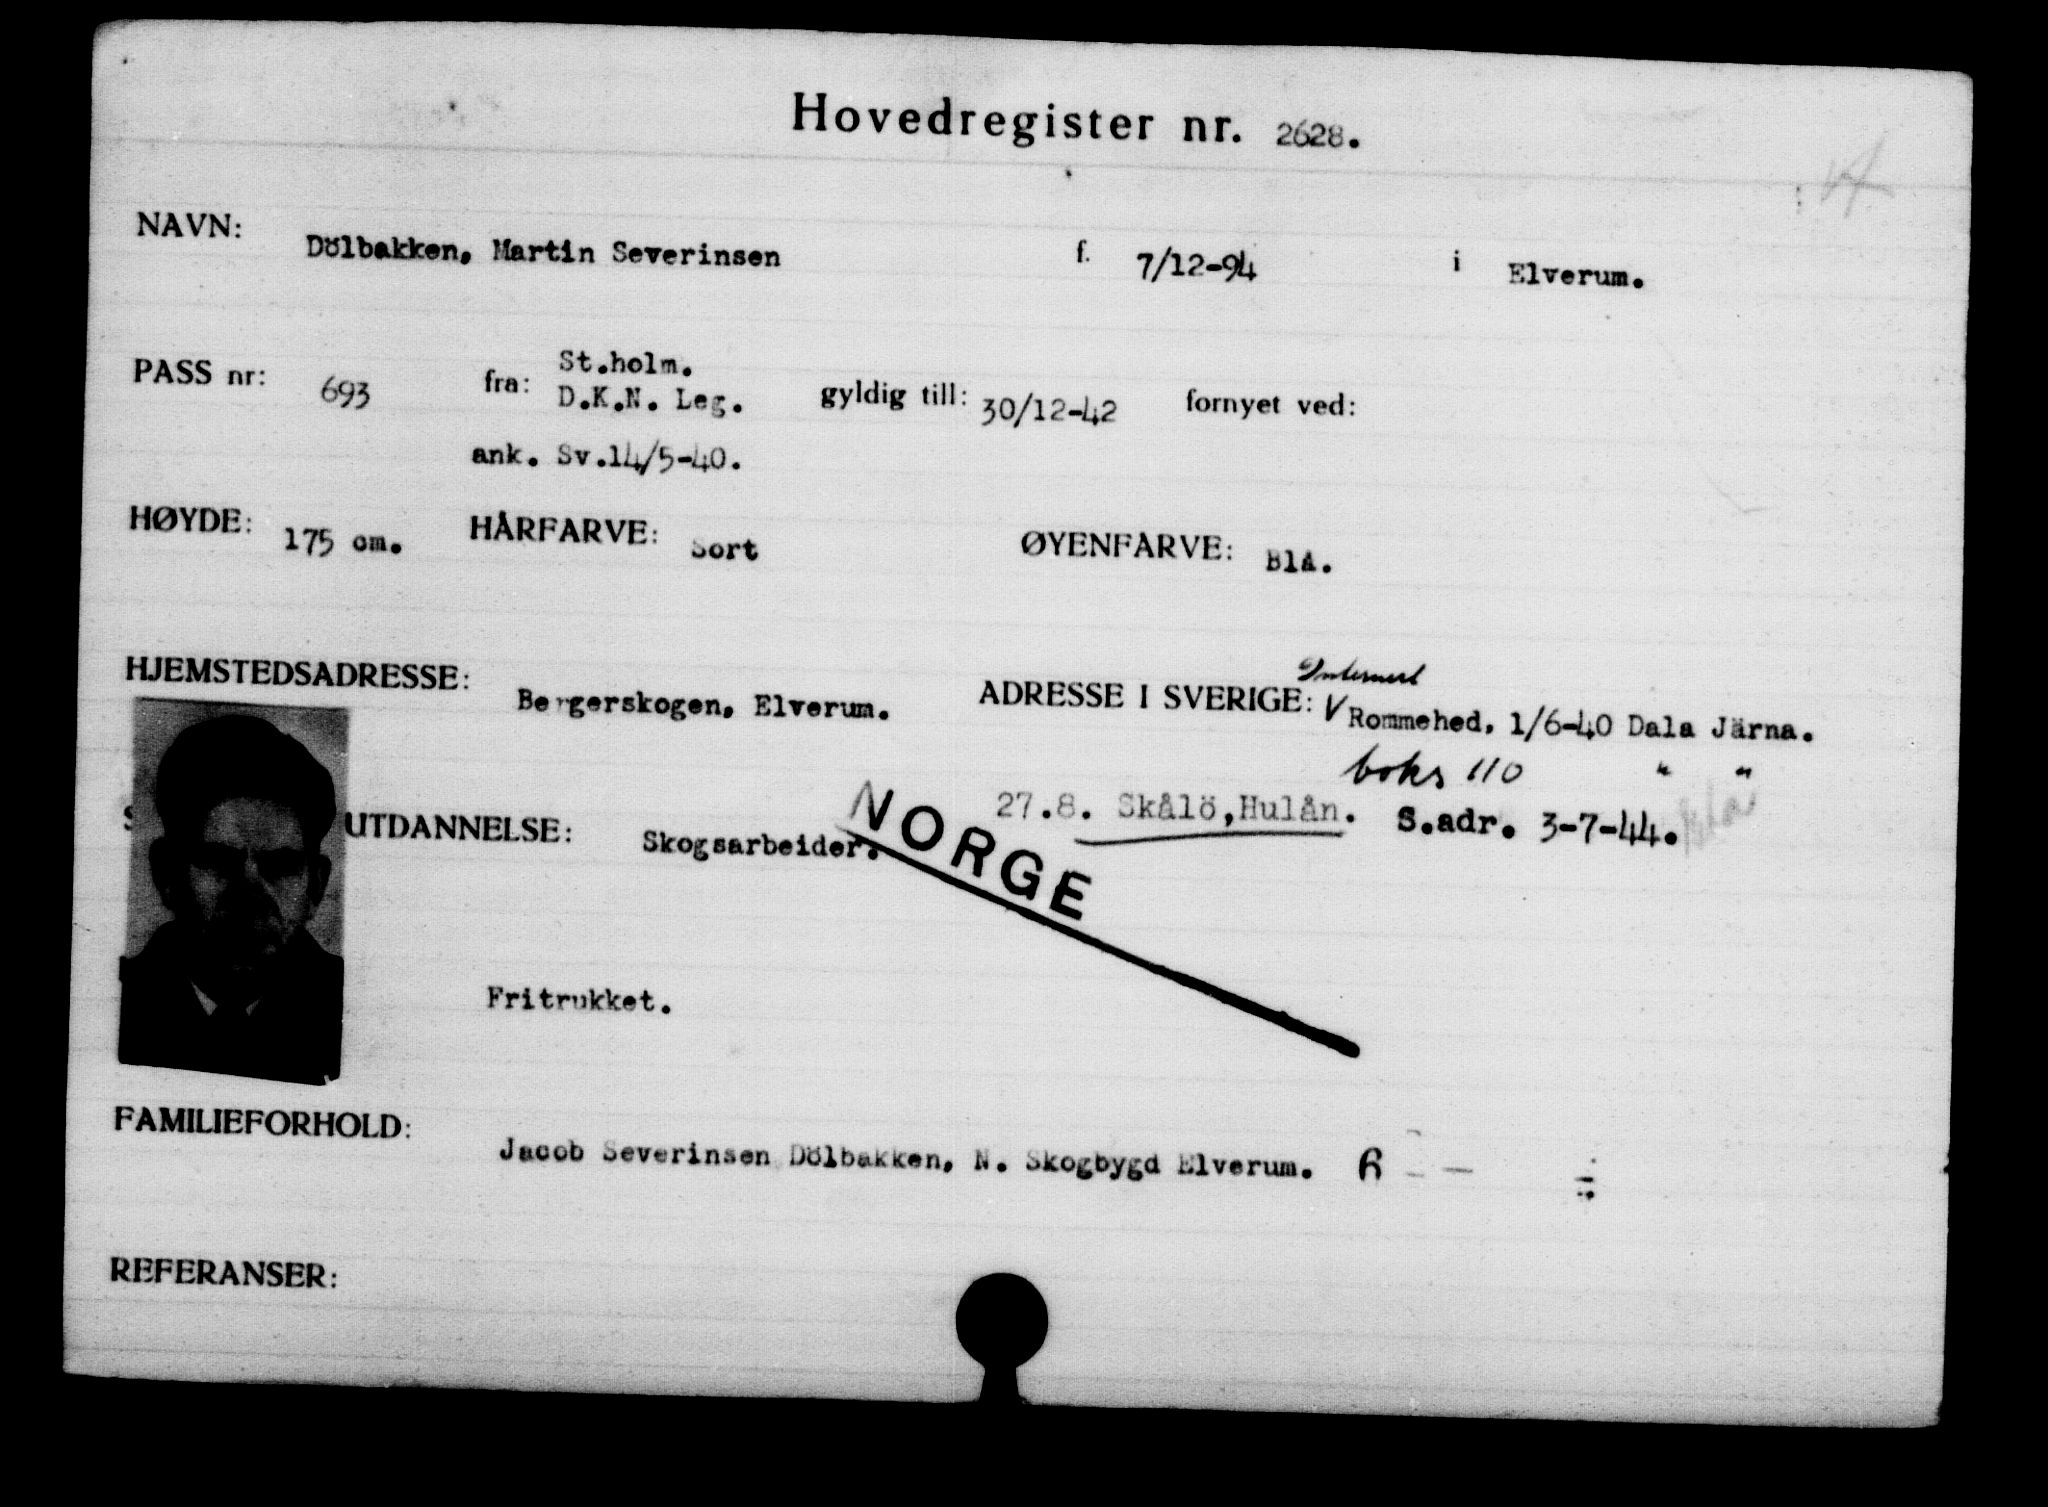 Hovedregister nr. 2628.
NAVN: Dölbakken, Martin Severinsen f. 7/12-94 i Elverum.
St.holm.
PASS nr: 693 fra: D.K.N. Leg. gyldig till: 30/12-42 fornyet ved:
ank. Sv.14/5-40.
HØYDE: 175 cm. HÅRFARVE: Sort ØYENFARVE: Blå.
Internert
HJEMSTEDSADRESSE: Bergerskogen, Elverum. ADRESSE I SVERIGE: V Rommehed, 1/6-40 Dala Järna.
boks 110 " "
27.8. Skålö,Hulån. S.adr. 3-7-44.
UTDANNELSE: Skogsarbeider.
NORGE
Fritrukket.
FAMILIEFORHOLD: Jacob Severinsen Dölbakken, N. Skogbygd Elverum. 6
REFERANSER: